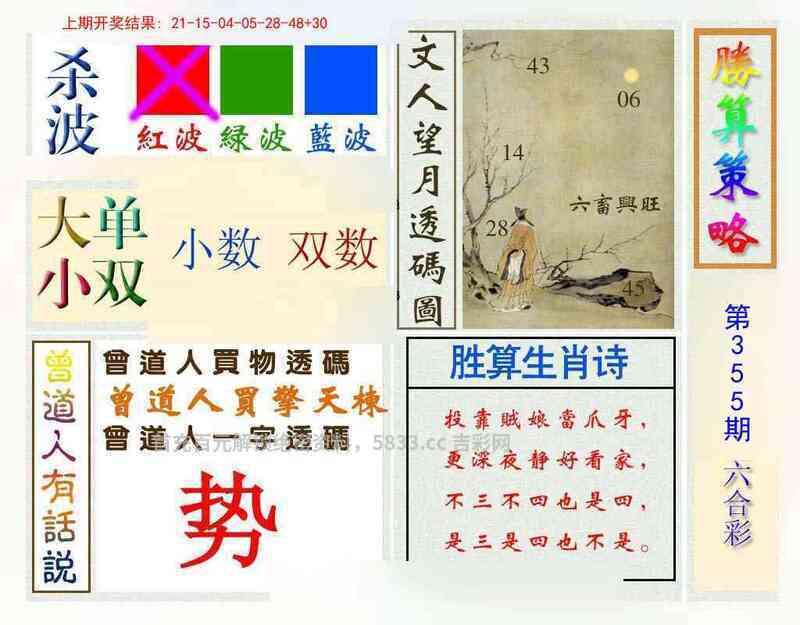 上期开奖结果：21-15-04-05-28-48+30
杀波
紅波 緑波 藍波
大单
小双
小数 双数
文人望月透碼圖
43
06
14
六畜興旺
28
45
勝算策略
第355期 六合彩
曾道人有話説
曾道人買物透碼
曾道人買擎天棟
曾道人一字透碼
5833.cc 吉彩网
势
胜算生肖诗
投靠贼娘當爪牙，
更深夜静好看家，
不三不四也是四，
是三是四也不是。